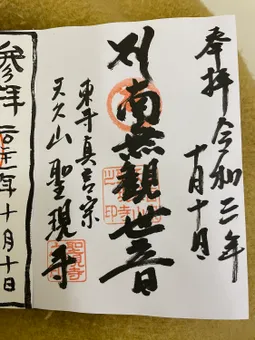 奉拝 令和三年
十月十日
南無觀世音
東寺真言宗
天久山聖現寺
参拝
年十月十日